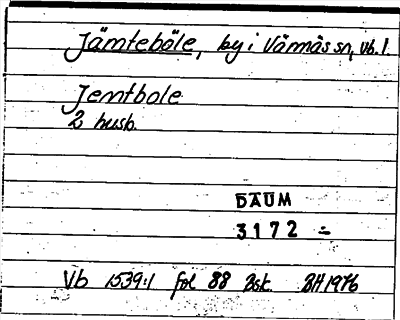 Jämteböle, by i Vännäs sn, Vb. l.
Jemtbole
2 husb.
DAUM
3172
Vb 1539:1 fol 88 Bsk. BH 1976